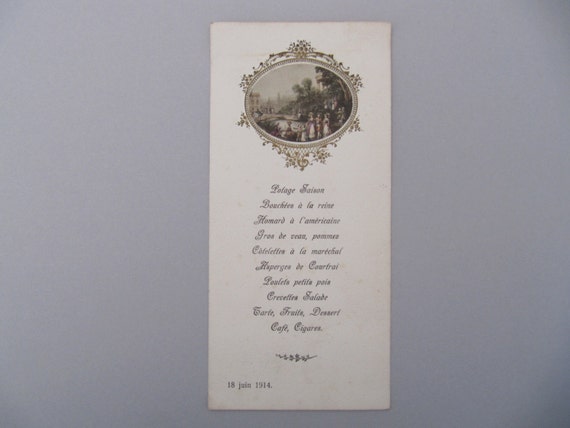 Potage Saison
Bouchées à la reine
Homard à l'américaine
Gros de veau, pommes
Côtelettes à la maréchal
Asperges de Courtrai
Poulets petits pois
Crevettes Salade
Tarte, Fruits, Dessert
Café, Cigares.
18 juin 1914.